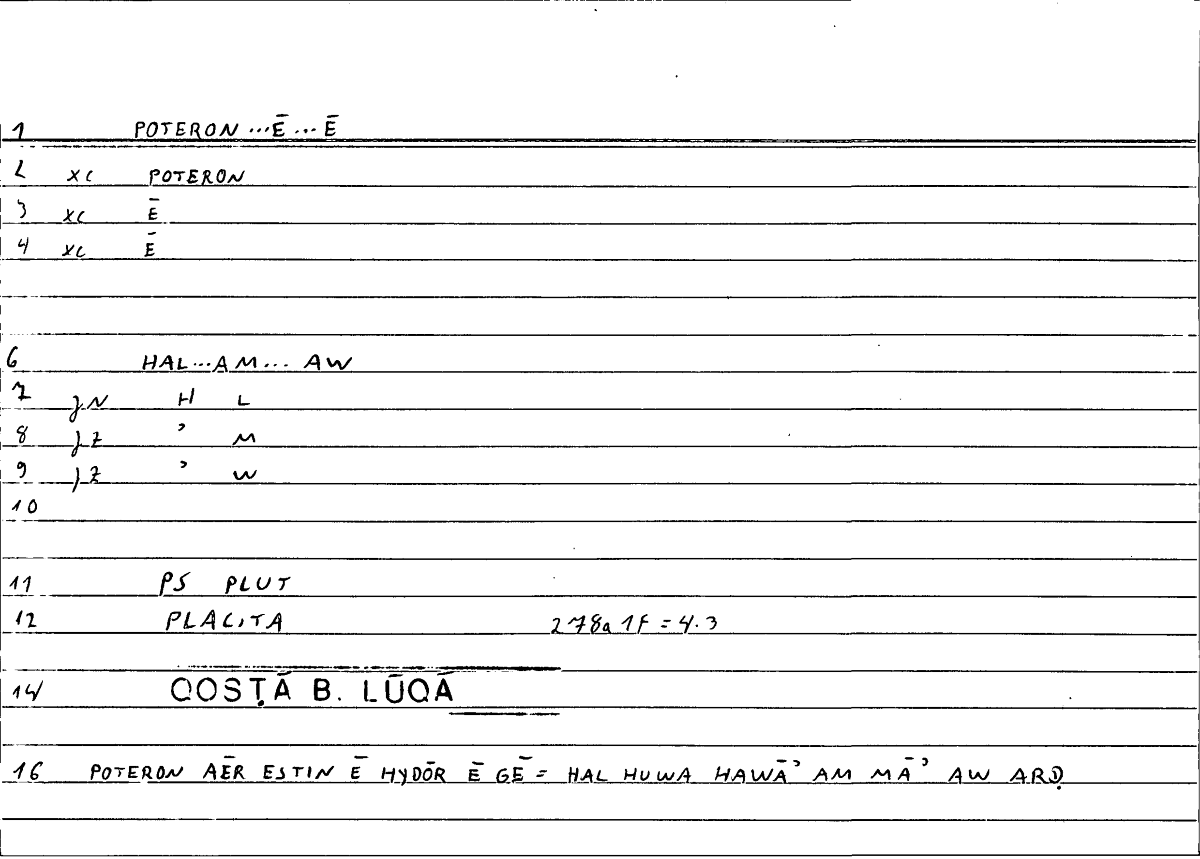 1 POTERON ... Ē ... Ē
2 XC POTERON
3 XC Ē
4 XC Ē
6 HAL...AM... AW
7 JN H L
8 JZ ʾ M
9 JZ ʾ W
10
11 PS PLUT
12 PLACITA 278a1f = 4.3
14 QOSṬĀ B. LŪQĀ
16 POTERON AĒR ESTIN Ē HYDŌR Ē GĒ = HAL HUWA HAWĀʾ AM MĀʾ AW ARḌ